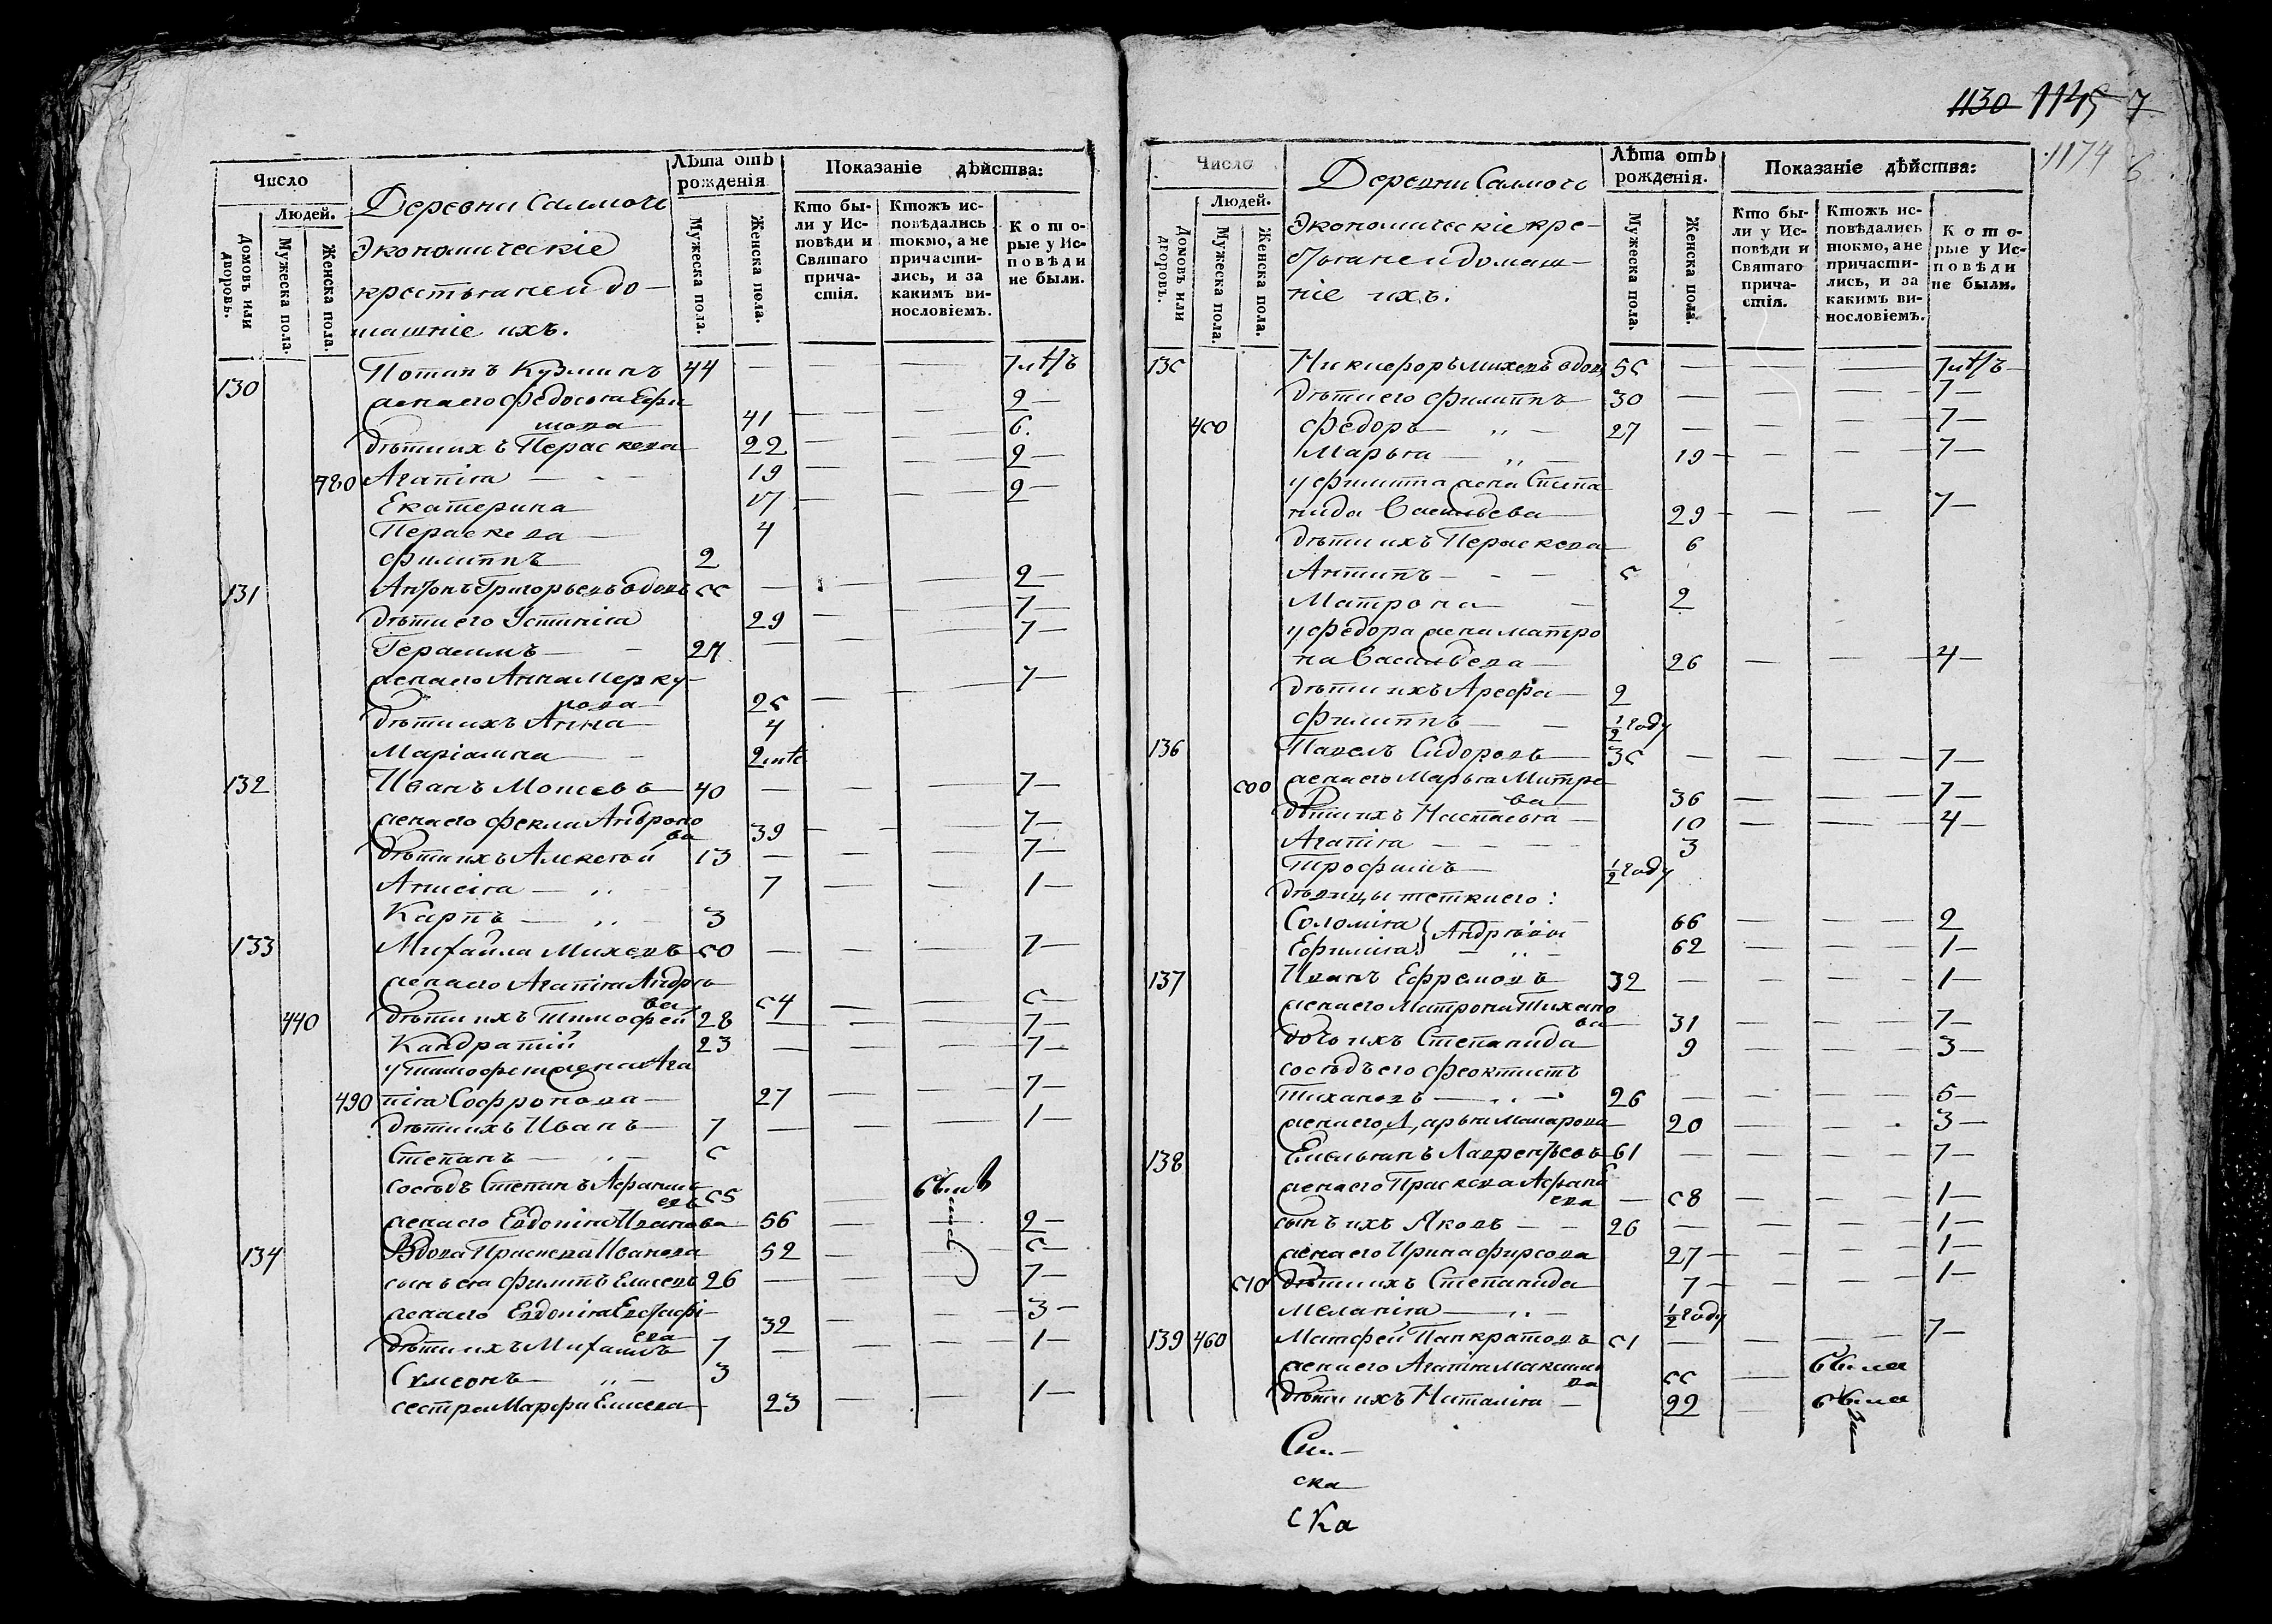 Число
Людей.
Домовъ или дворовъ.
Мужеска пола.
Женска пола.
Деревни Салмочь
Экономическіе
крестьяне и до-
машніе ихъ.
Лѣта отъ рожденія
Мужеска пола.
Женска пола.
Показаніе дѣйства:
Кто были у Исповѣди и Святаго причастія.
Ктожъ исповѣдались токмо, а не причастились, и за какимъ винословіемъ.
Которые у Исповѣди не были.
130 Потапъ Кузминъ 44 — — — 7 лѣтъ
жена его Федосья Ефи
мова 41 — — — 2 —
дѣти ихъ Параскева 22 — — — 6.
480 Агапія — 19 — — — 2 —
Екатерина 17 — — — 2 —
Параскева — 4
Филиппъ 2
131 Антонъ Григорьевъ вдовъ 55 — — — 2 —
дѣти его Устинія 29 — — — 7 —
Герасимъ — 24 — — — 7 —
жена его Анна Мерку-
рова 25 — — — 7 —
дѣти ихъ Анна 4
Маріамна — 2
132 Иванъ Моисеевъ 40 — — — 7 —
жена его Фекла Андроно
ва 39 — — — 7 —
дѣти ихъ Алексѣй 13 — — — 7 —
Анисія — „ — 7 — — — 1 —
Карпъ — „ — 3
133 Михайла Михеевъ 50 — — — 7 —
жена его Агапія Андрѣе
ва 54 — — — 5 —
440 дѣти ихъ Тимофей 28 — — — 7 —
Кандратій 23 — — — 7 —
у Тимофея жена Ага
490 пія Софронова — 27 — — — 7 —
дѣти ихъ Иванъ 7 — — — 1 —
Степанъ — 5
сосѣдъ Степанъ Афанась
евъ 55
жена его Евдокія Иванова 56 — — 2 —
134 Вдова Праскева Иванова 52 — — 5 —
сынъ ея Филипъ Елисеевъ 26 — — — 7 —
жена его Евдокія Евстафі-
ева 32 — — — 3 —
дѣти ихъ Михаилъ 7 — — — 1 —
Сумеонъ — „ — 3
сестра Марфа Елисева 23 — — — 1 —
1130 1145 7
1174 6
Число
Людей.
Домовъ или дворовъ.
Мужеска пола.
Женска пола.
Деревни Салмочь
Экономическіе кре-
стьяне и домаш-
ніе ихъ.
Лѣта отъ рожденія.
Мужеска пола.
Женска пола.
Показаніе дѣйства:
Кто были у Исповѣди и Святаго причастія.
Ктожъ исповѣдались токмо, а не причастились, и за какимъ винословіемъ.
Которые у Исповѣди не были.
135 Никифоръ Михеевъ вдовъ 55 — — — 7 лѣтъ —
дѣти его Филиппъ 30 — — — 7 —
450 Федоръ — „ — 27 — — — 7 —
Марья — „ — 19 — — — 7 —
у Филиппа жена Степа
нида Васильева 29 — — — 7 —
дѣти ихъ Параскева 6
Антипъ — 5
Матрона — 2
у Федора жена Матро
на Васильева — 26 — — — 4 —
дѣти ихъ Арефа — 2
Филиппъ — 1/2 году
136 Павелъ Сидоровъ — 35 — — — 7 —
500 жена его Марья Митре
ва 36 — — — 7 —
дѣти ихъ Настасья — 10 — — — 4 —
Агапія — 3
Трофимъ — 1/2 году
дѣвицы тетки его:
Соломія } Андрѣевы 66 — — — 2
Ефимія 62 — — — 1 —
137 Иванъ Ефремовъ 32 — — — 1 —
жена его Матрона Тихано
ва 31 — — — 7 —
дочь ихъ Степанида 9 — — — 3 —
сосѣдъ его Феоктистъ
Тихановъ — 26 — — — 6 —
жена его Дарья Макарова 20 — — — 3 —
138 Емельянъ Лаврентьевъ 61 — — — 7 —
жена его Праскева Афана
сева — 58 — — — 1 —
сынъ ихъ Яковъ — 26 — — — 1 —
жена его Ирина Фирсова 27 — — — 1 —
510 дѣти ихъ Степанида 7 — — — 1 —
Меланія — „ — 1/2 году
139 460 Матфей Панкратовъ 51 — — — 7 —
жена его Агапія Максимо
ва 55 — была
дѣти ихъ Наталія — 22 — была
ска
ска